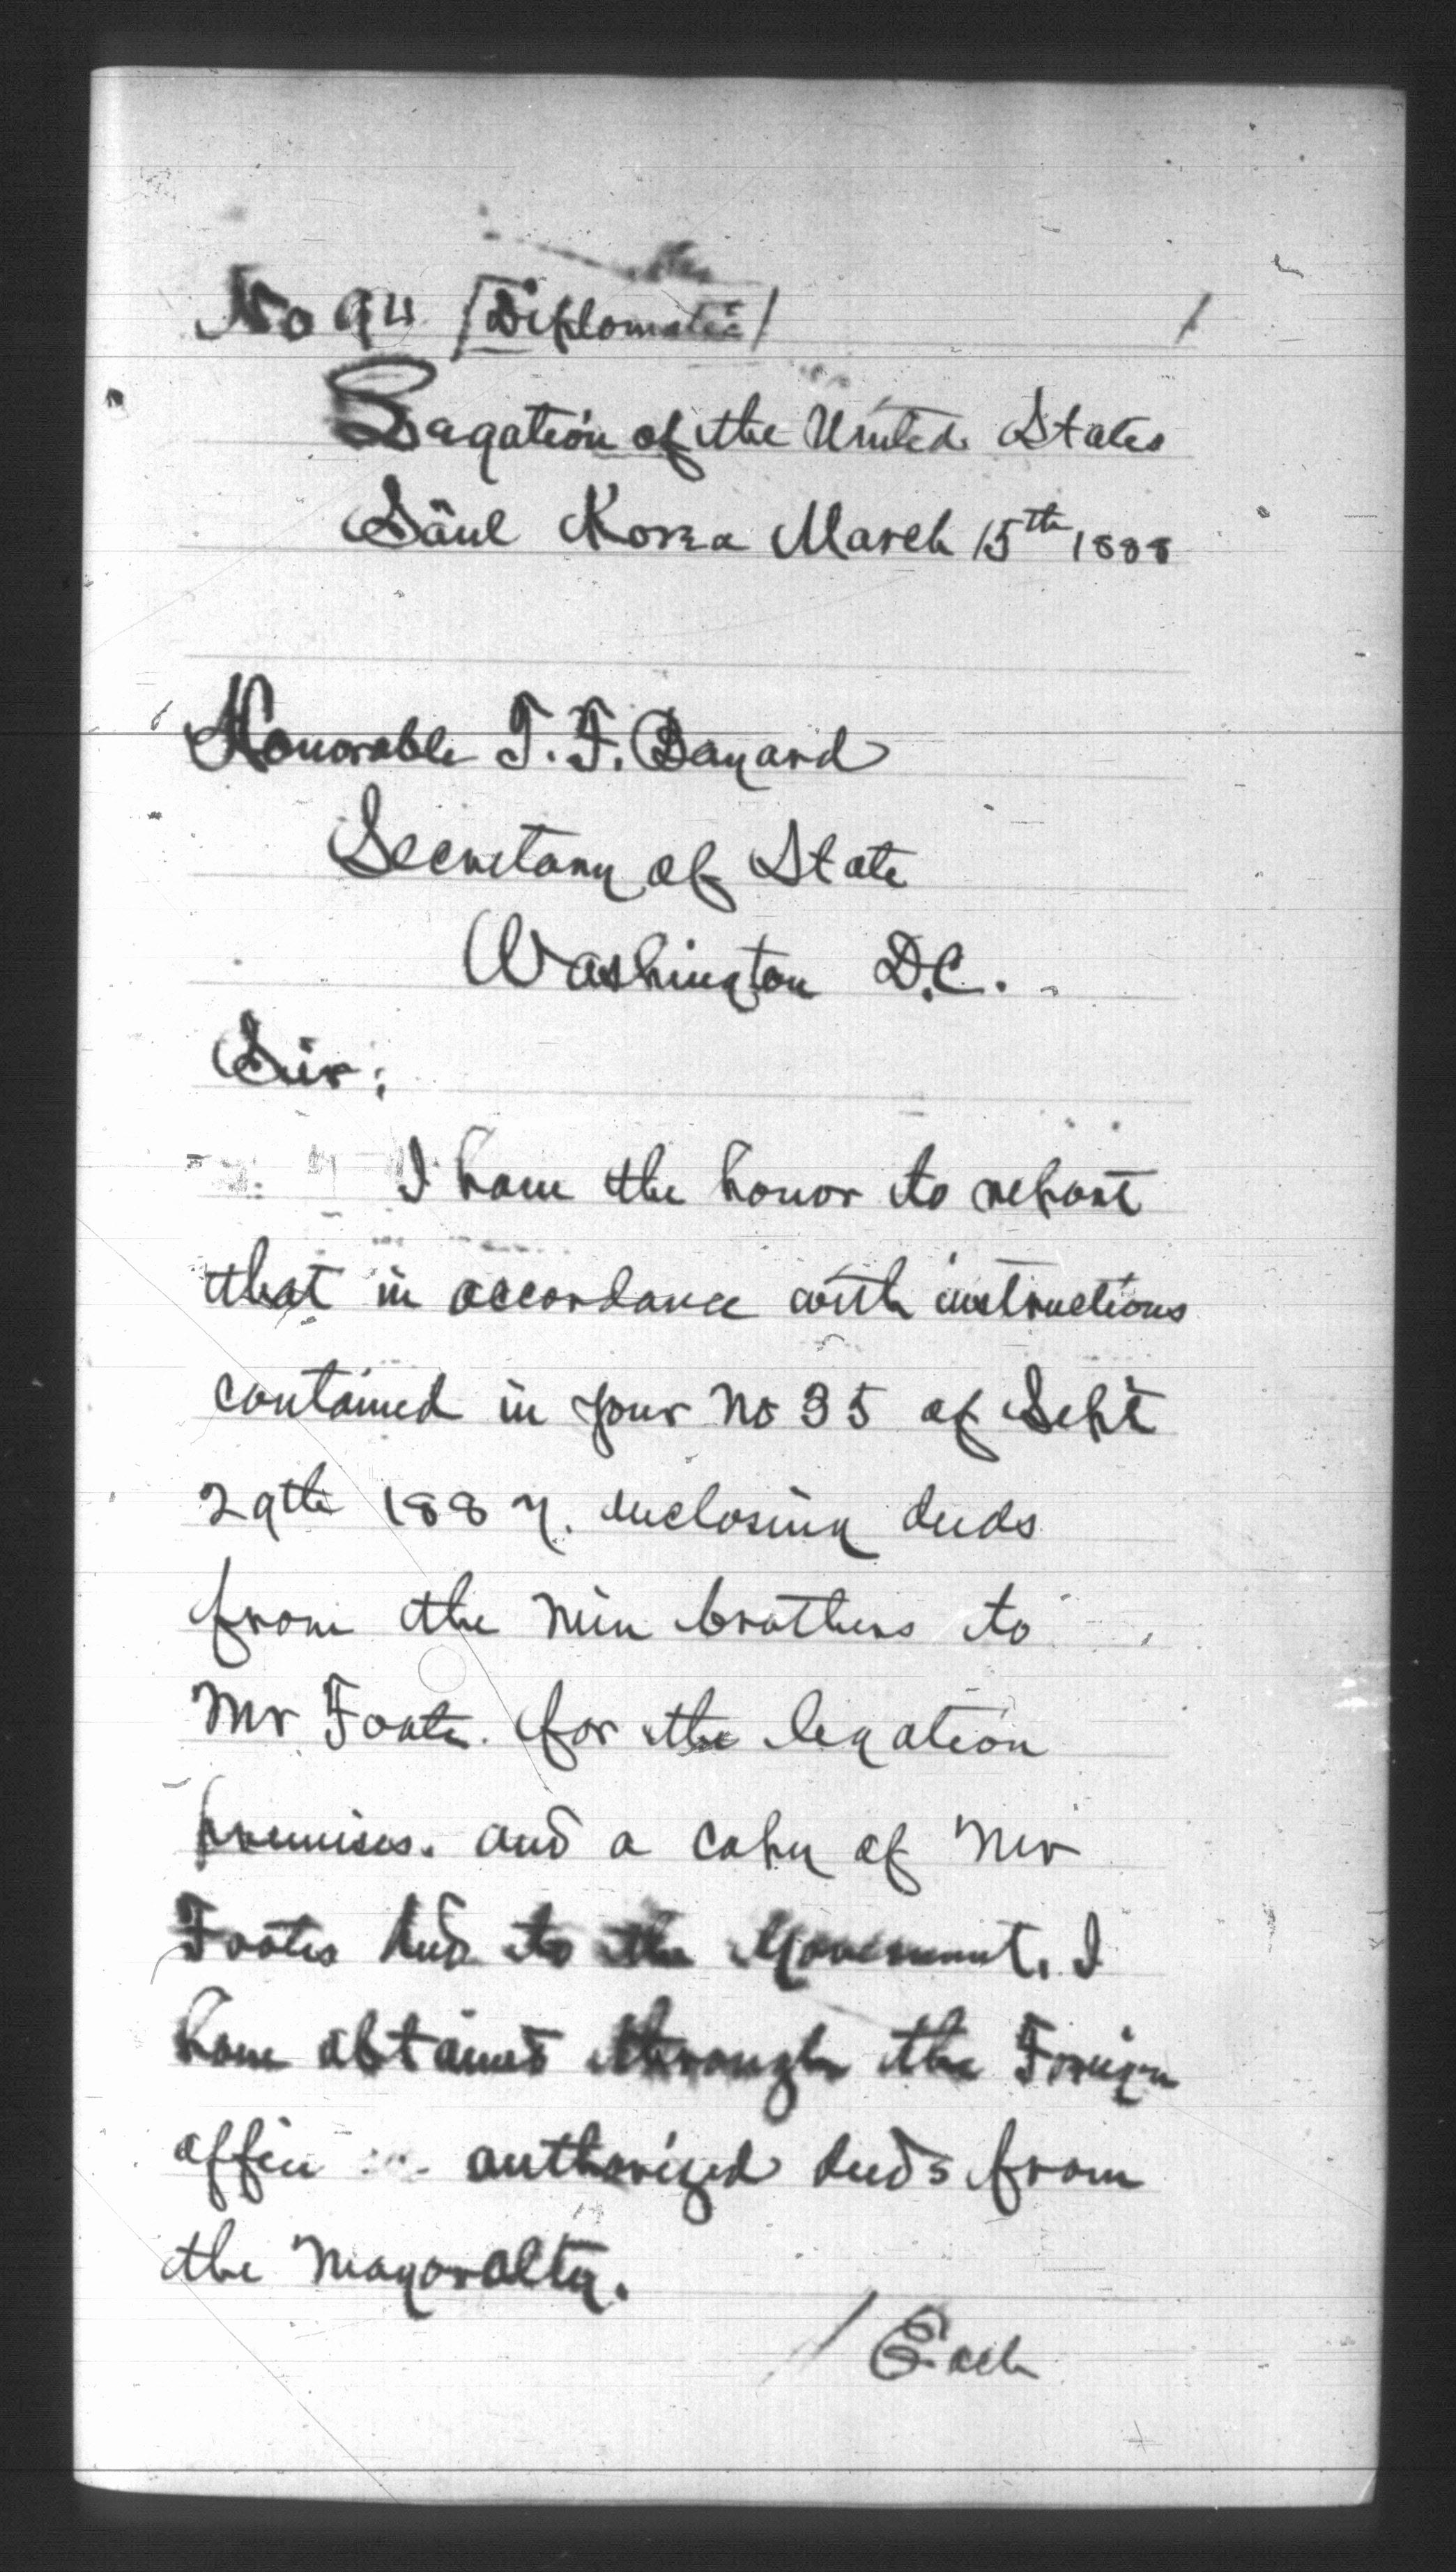 No 94 [Diplomatic] 1
Legation of the United States
Söul Korea March 15th 1888
Honorable T. F. Bayard
Secretary of State
Washington D.C.
Sir;
I have the honor to report
that in accordance with instructions
contained in your No 35 of Sept
29th 1887. enclosing deeds
from the Min brothers to
Mr Foote. for the legation
premises. and a copy of Mr
Footes deed to the Government. I
have obtained through the Foreign
office authorized deeds from
the Mayoralty.
/ Each